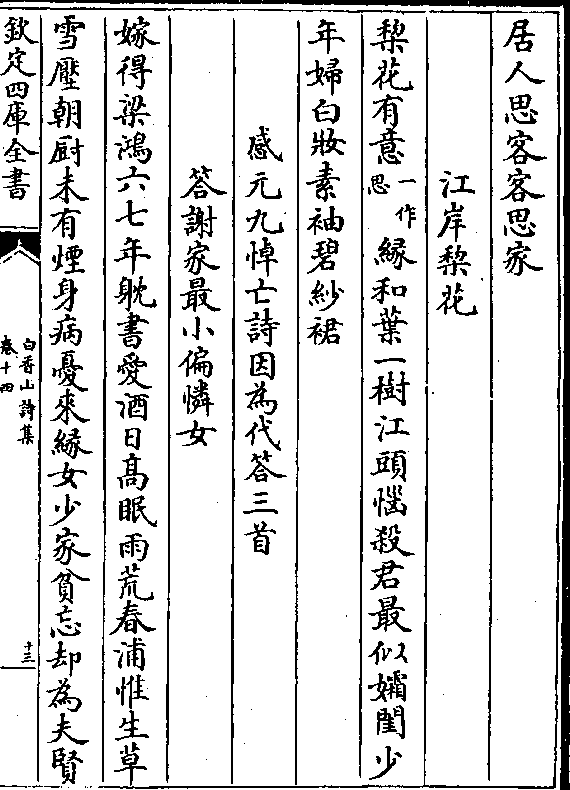 居人思客客思家
江岸棃花
棃花有意一作思緣和葉一樹江頭惱殺君最似孀閨少
年婦白妝素袖碧紗裙
感元九悼亡詩因為代答三首
答謝家最小偏憐女
嫁得梁鴻六七年躭書愛酒日髙眠雨荒春浦惟生草
雪壓朝厨未有煙身病憂來緣女少家貧忘却為夫賢
欽定四庫全書
白香山詩集
卷十四
十三